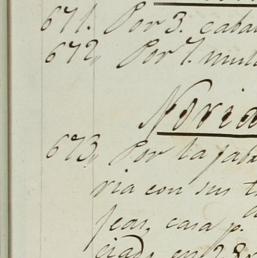 671. Por 3. caba
672, Por 1. mul
Noria
673, Por la fab
ria con sus t
casa p.